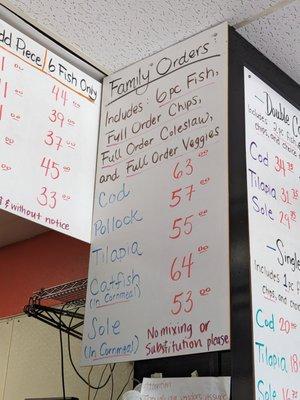 dd Piece
6 Fish Only
44 00
39 00
37 00
45 00
33 00
& without notice
Family Orders
Includes: 6pc Fish,
Full Order Chips,
Full Order Coleslaw,
and Full Order Veggies
Cod 63 00
Pollock 57 00
Tilapia 55 00
Catfish 64 00
(In Cornmeal)
Sole 53 00
(In Cornmeal)
No mixing or
Substitution please
Double C
Includes 2pc
chips, and
Cod 34
Tilapia 31
Sole 29
Single
Includes 1pc f
chips, and
Cod 20
Tilapia 18
Sole